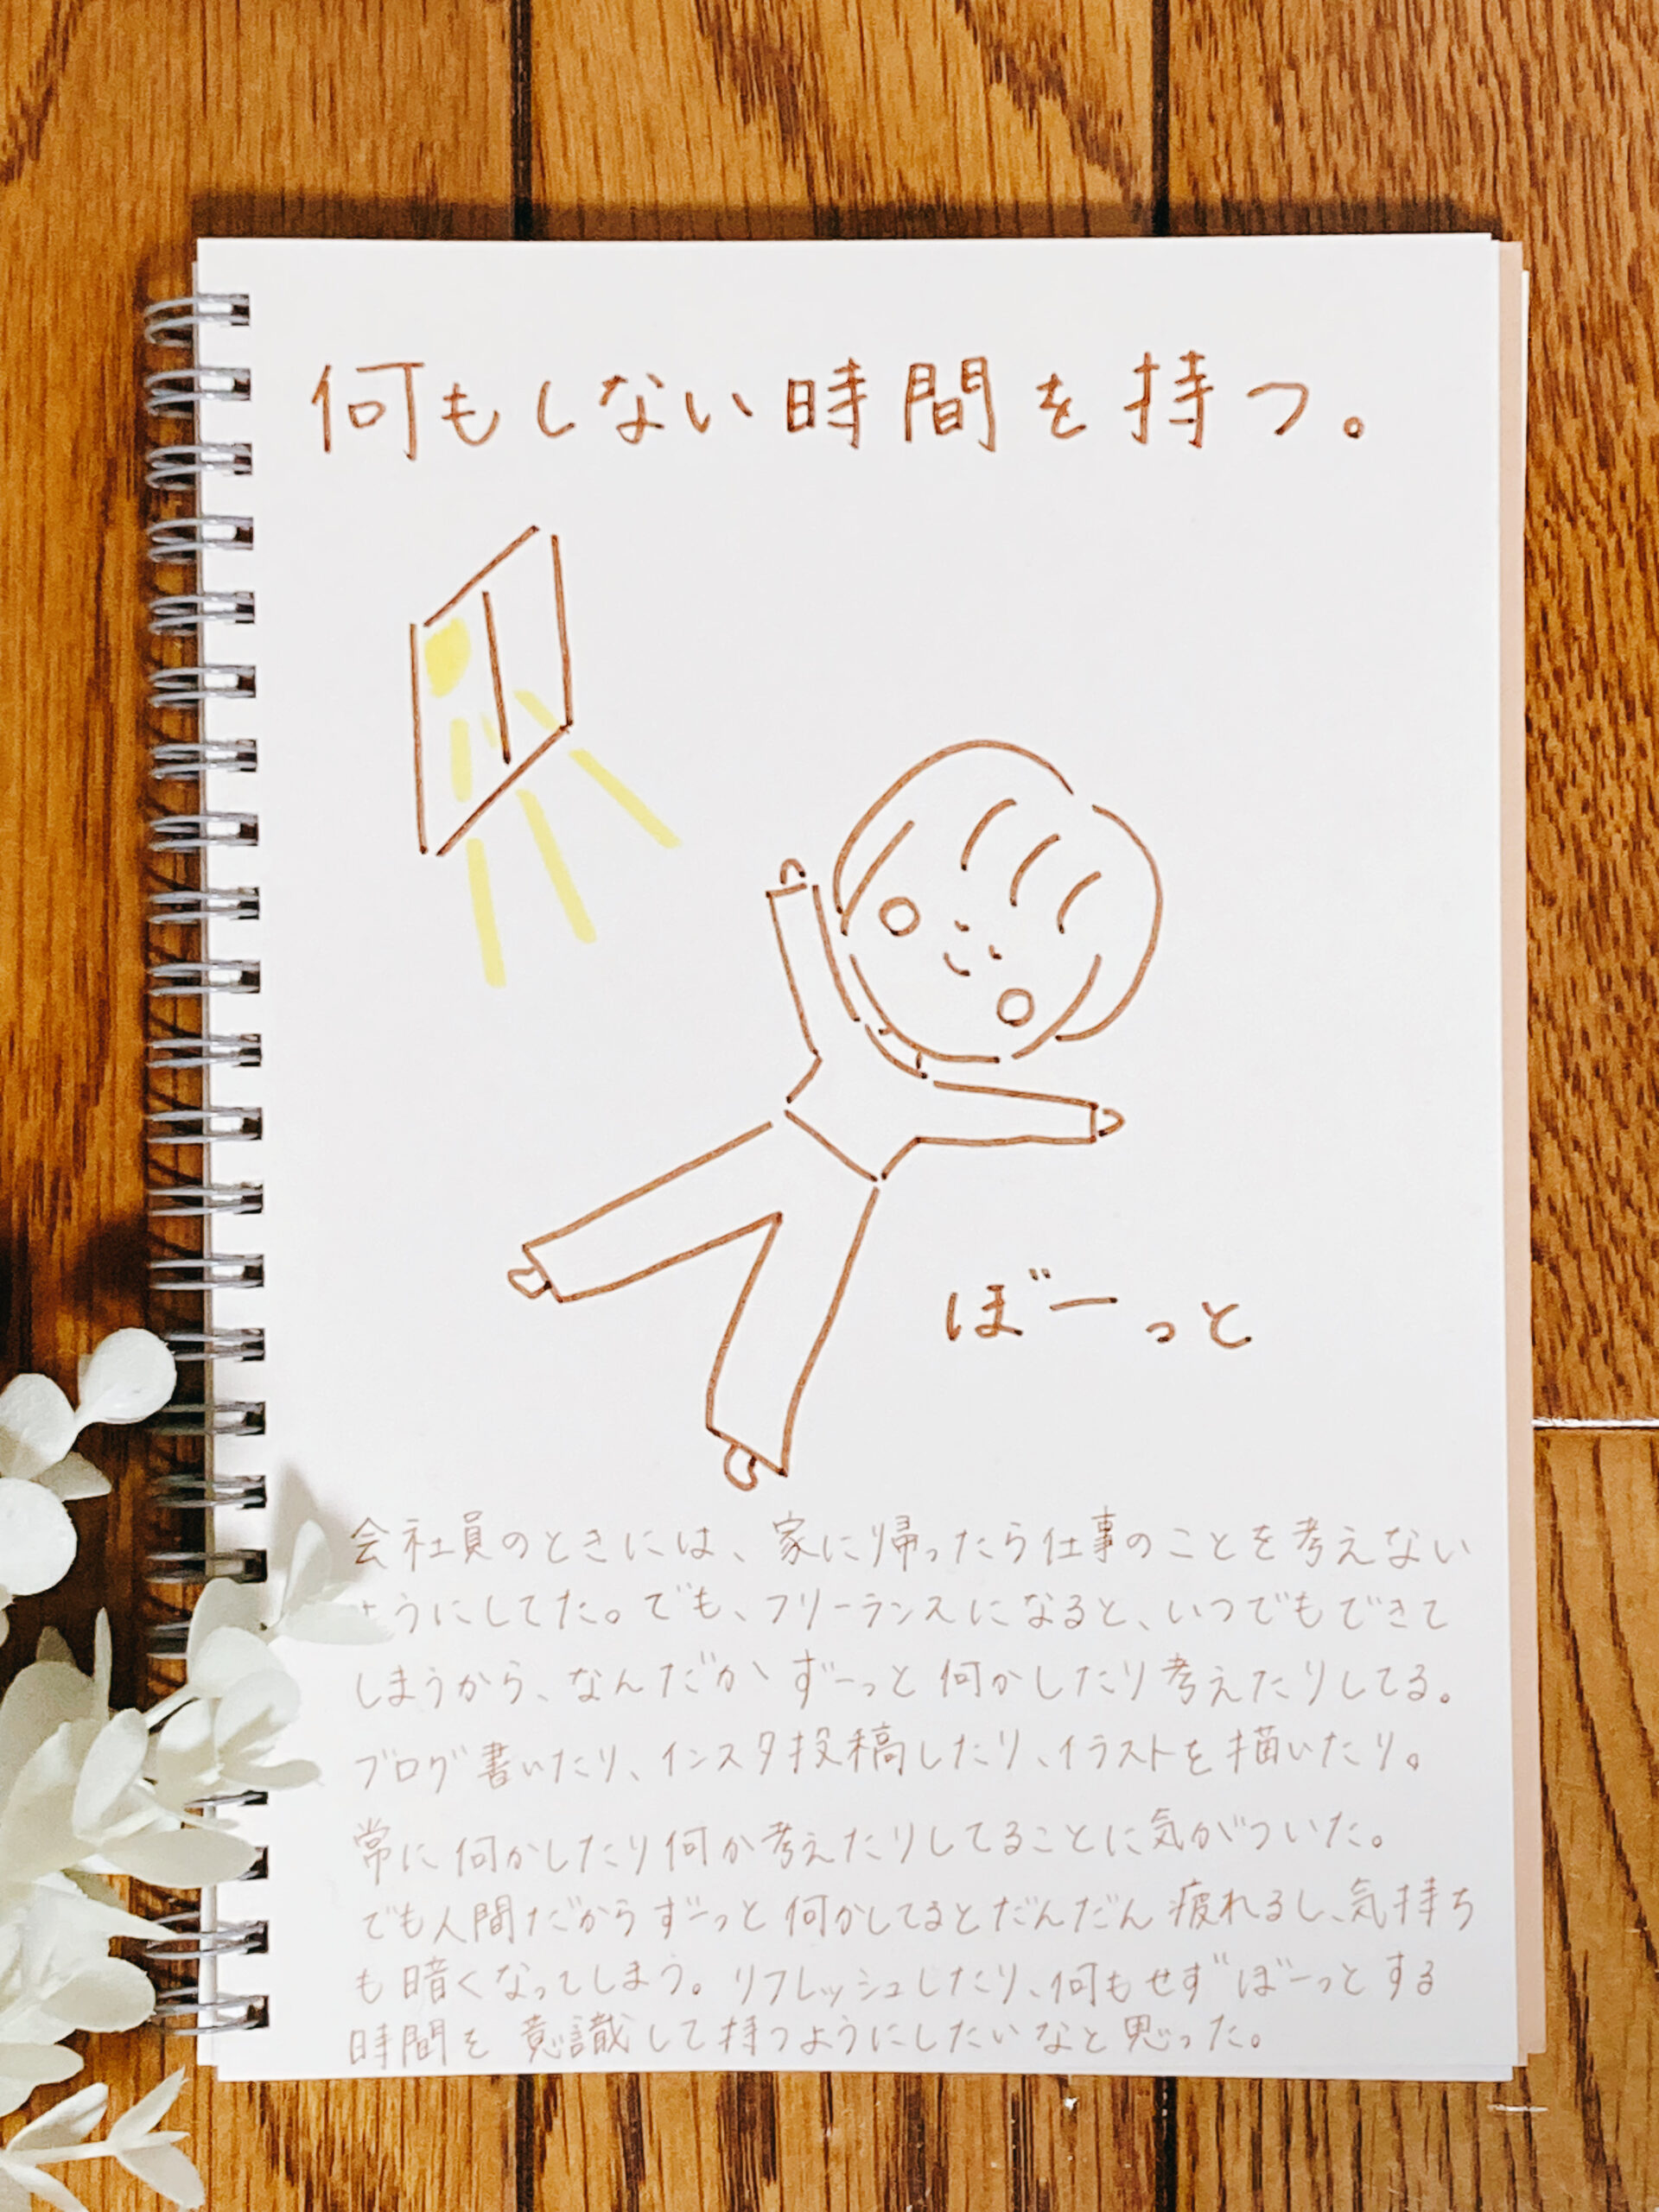 何もしない時間を持つ。
ぼーっと
会社員のときには、家に帰ったら仕事のことを考えない
ようにしてた。でも、フリーランスになると、いつでもできて
しまうから、なんだか ずーっと 何かしたり考えたりしてる。
ブログ書いたり、インスタ投稿したり、イラストを描いたり。
常に何かしたり何か考えたりしてることに気がついた。
でも人間だからずーっと何かしてるとだんだん疲れるし、気持ち
も暗くなってしまう。リフレッシュしたり、何もせずぼーっとする
時間を意識して持つようにしたいなと思った。